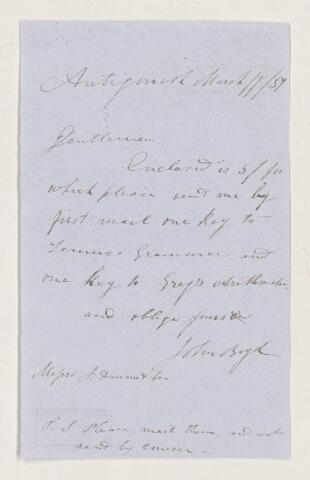 Antigonish March /7/57
Gentlemen
Enclosed is 5/ for
which please send me by
first mail one Key to
Lennies Grammar and
one Key to Gray's Arithmetic
and oblige yours &c
John Boyd
Messrs J. Dawson & Son
P. S Please mail them, and not
send by